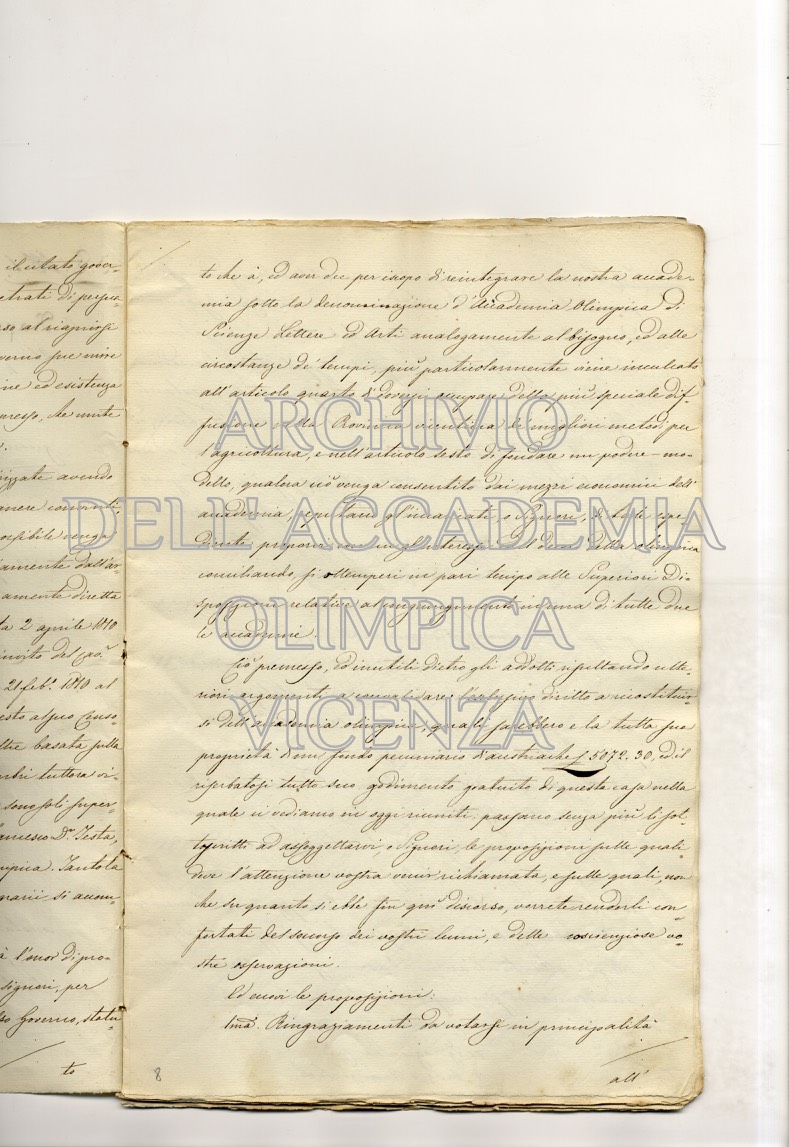 il citato gover-
etrati di persua
rso al riaprirsi
verno pre mire
ine ed esistenza
messo, che unite
izzate avendo
anere correnti,
ossibile venga
amente dall'ar
amente diretta
ta 2 aprile 1810
invito del
21 feb.° 1810 al
esto al suo Censo-
ltre basata sulla
mbri tuttora vi-
sono soli super-
ancesco D.r Testa,
mpica. Tantola
narii, si accom
à l'onor di pro-
signori, per
so Governo, statu
to
to che à, ed aver dee per iscopo di reintegrare la nostra accade-
mia sotto la denominazione d'Accademia Olimpica di
Scienze Lettere ed Arti analogamente al bisogno, ed alle
circostanze de' tempi, più particolarmente viene inculcato
all'articolo quarto d'doversi occupare della più speciale dif-
fusione nella Provincia vicentina de' migliori metodi per
l'agricoltura, e nell'articolo sesto di fondare un podere-mo-
dello, qualora ciò venga consentito dai mezzi economici dell'
accademia, reputano gl'incaricati, o Signori, di tale espe-
diente proporvi con cui gl'interessi ed i desideri della olimpica
conciliando, si ottemperi in pari tempo alle Superiori Di-
sposizioni relative al congiungimento in una di tutte due
le accademie.
Ciò premesso, ed inutili dietro gli addotti risultando ulte-
riori argomenti a convalidare l'integro diritto a ricostituir-
si dell'accademia olimpica, quali sarebbero e la tutta sua
proprietà d'un fondo pecuniario d'austriache £ 5072.30, ed il
riserbatosi tutto suo godimento gratuito di questa casa nella
quale ci vediamo in oggi riuniti. passano senza più li sot-
toscritti ad assoggettarvi, o Signori, le proposizioni sulle quali
deve l'attenzione vostra venir richiamata, e sulle quali, non
che su quanto si ebbe fin qui discorso, vorrete renderli con-
fortati del soccorso dei vostri lumi, e delle coscienziose vo-
stre osservazioni.
Ed eccovi le proposizioni:
1ma. Ringraziamenti da votarsi in principalità
all'
8
ARCHIVIO
DELL'ACCADEMIA
OLIMPICA
VICENZA